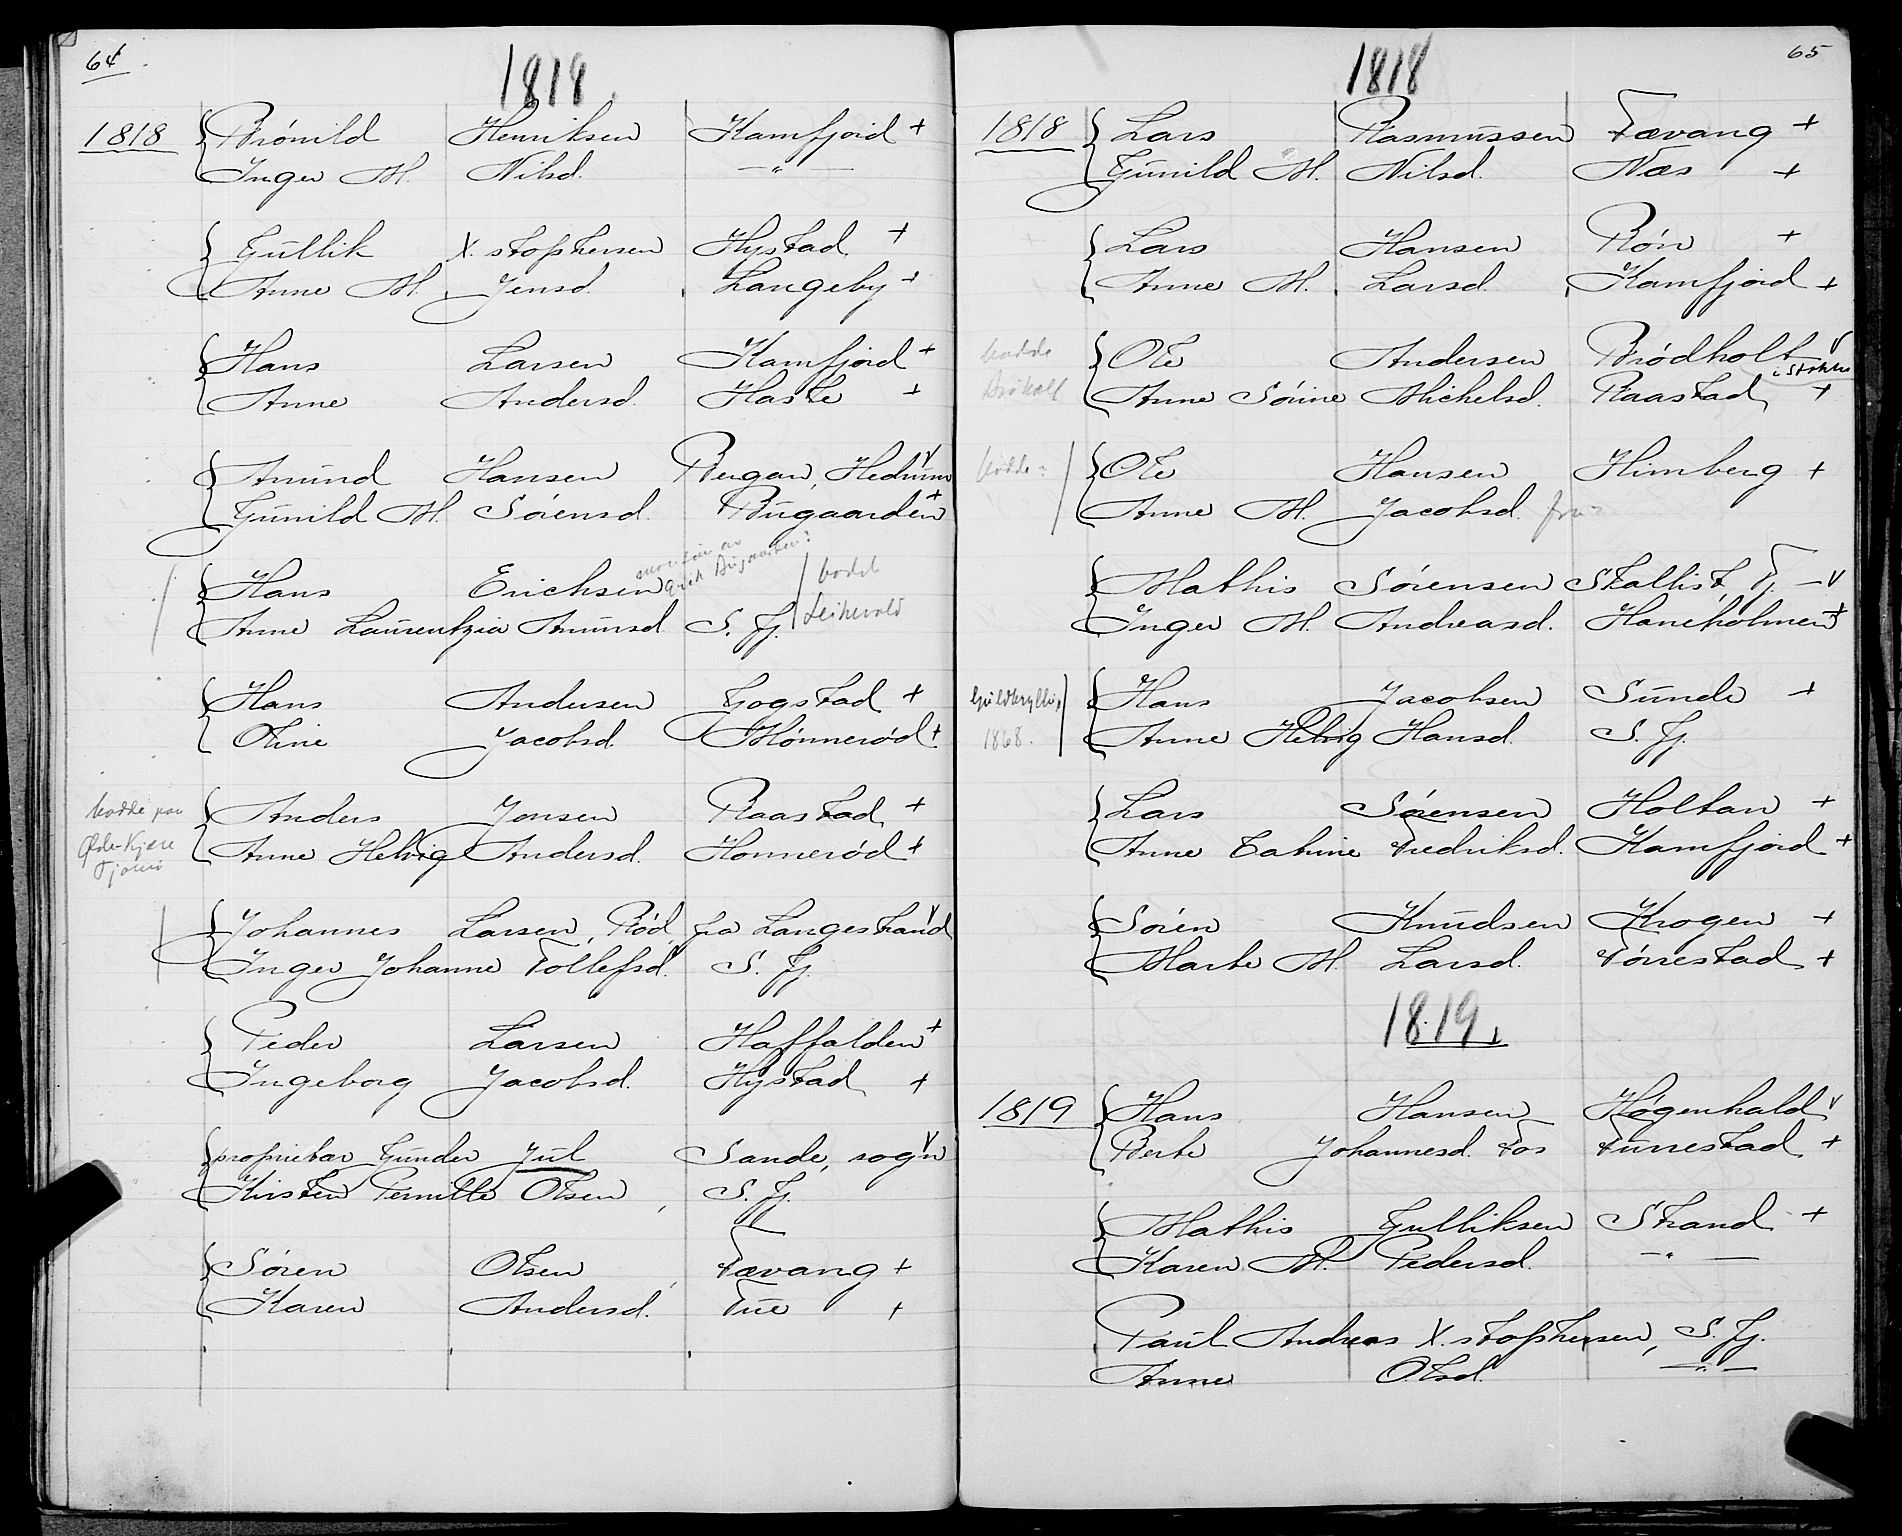 64
1818
1818 Brönild Henriksen Kamfjord +
Inger M. Nilsd. —"—
Gullik X.stophersen Hystad +
Anne M. Jensd. Langeby +
Hans Larsen Kamfjord +
Anne Andersd. Hasle +
Amund Hansen Bergan, Hedrum v
Gunild M. Sörensd. Bugaarden +
Hans Erichsen
bodd
Anne Laurentzia Amunsd. S. Fj.
Hans Andersen Gogstad +
Oline Jacobsd. Mönnerød +
bodde paa
Tjømø
Anders Jonsen Raastad +
Anne Helvig Andersd. Honnerød +
Johannes Larsen, Rød, fra Langestrand v
Inger Johanne Tollefsd. S. Fj.
Peder Larsen Haffalden +
Ingeborg Jacobsd. Hystad +
proprietar Gunder Jul Sande, sogn v
Kirsten Pernille Olsen, S. Fj.
Sören Olsen, Tævang +
Karen Andersd. Tue +
65
1818
1818 Lars Rasmussen Tævang +
Gunild M. Nilsd. Næs +
Lars Hansen Rön +
Anne M. Larsd. Kamfjord +
bodde
Ole Andersen Brødholt v
i Stokke
Anne Sörine Michelsd. Raastad +
bodde?
Ole Hansen Himberg +
Anne M. Jacobsd. fra?
Mathis Sörensen Skallist, Tj. — v
Inger M. Andreasd. Haneholmen +
Guldbryllup
1868.
Hans Jacobsen Sunde +
Anne Helvig Hansd. S. Fj.
Lars Sørensen Holtan +
Anne Cathine Fredriksd. Kamfjord +
Sören Knudsen Krogen +
Marte M. Larsd. Förrestad +
1819.
1819 Hans Hansen Høgenhald v
Berte Johannesd. Fos Furrestad +
Mathis Gulliksen Strand +
Karen M. Pedersd. —"—
Paul Andreas X.stophersen, S. Fj.
Anne Olsd. —"—